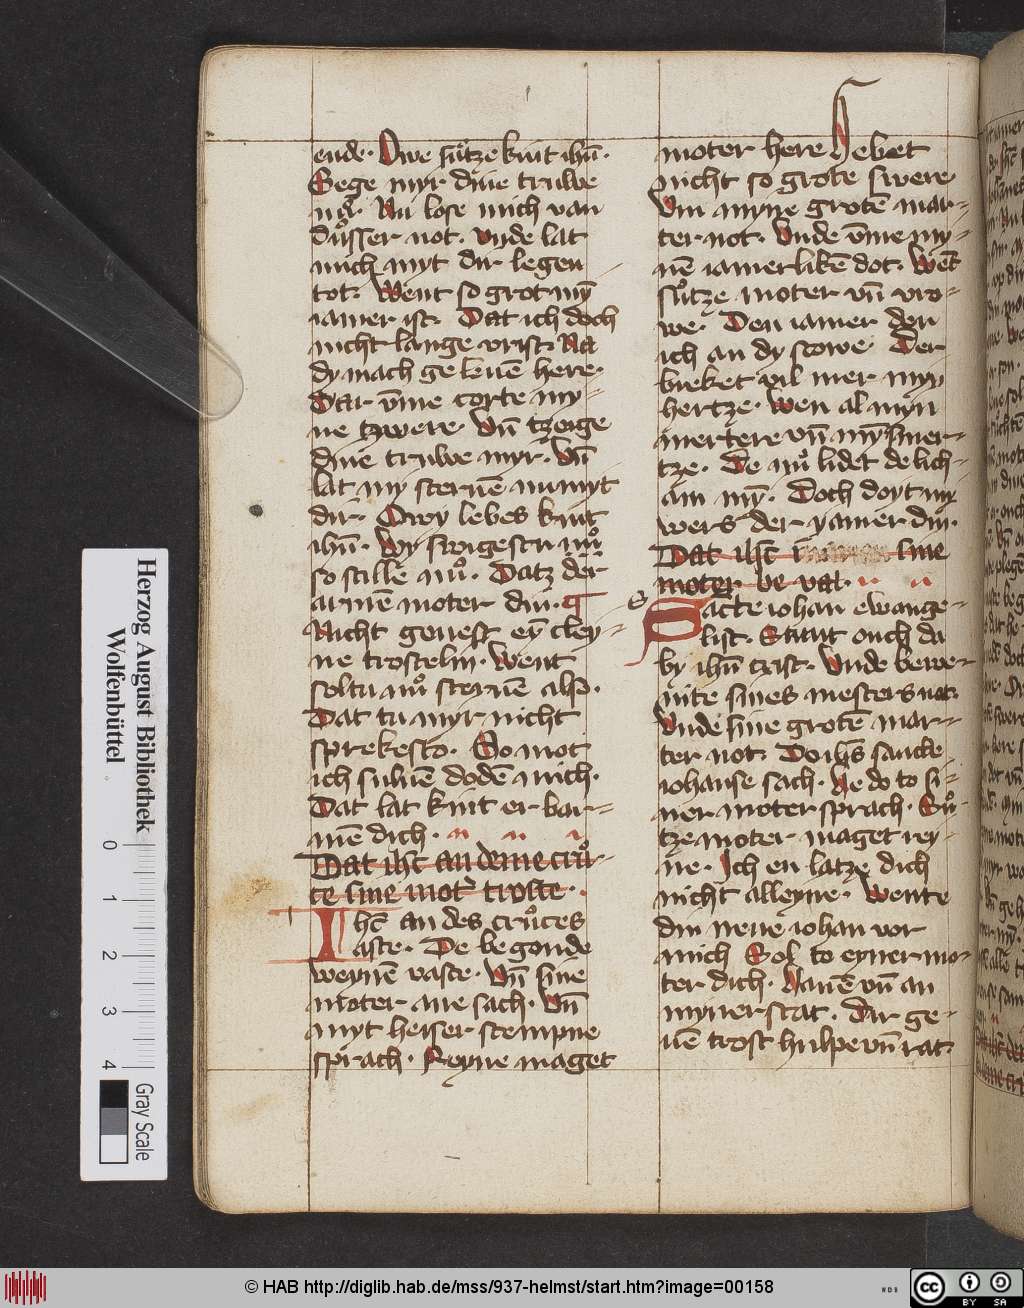 ende. Owe sůtze kint ihū.
Sege myr dine truwe
nů. Nu lose mich van
důsser not. vnde lat
mich myt dir legen
tot. Went so grot mȳ
iamer ist. Dat ich doch
nicht lange vrist. Na
dy mach ge leuē here.
Dar vm̄e corte my-
ne tzwere. Vn̄ tzoige
dine truwe myr. Vn̄
lat my steruē nu myt
dir. Owy leues kint
ihū. Wy swigestu nů
so stille nů. Datz der
armē moter din.
Nicht genest eȳ cley-
ne trostelin. Went
soltu nů steruē also.
Dat tu myr nicht
sprekest to. So mot
ich suluē dodē mich.
Dat lat kint er bar-
mē dich.
Dat ihc an deme crů-
ce sine mot' troste.
Ihc an des crůces
aste. De be gonde
weynē vaste. Vn̄ sine
moter ane sach. Vn̄
myt heiser stempne
sprach. Reyne maget
moter here Hebet
nicht so grote swere
Vm myne grotē mar-
ter not. Vnde vm̄e my-
nē iamerlikē dot. Wēt
sůtze moter vn̄ vro-
we. Den iamer den
ich an dy scowe. Der
breket vil mer myn
hertze. Wen al myn
mertere vn̄ mȳ smer-
tze. De nů lidet de lich-
am mȳ. Doch doyt my
wers der yamer din.
Dat ihc sine
moter be val.
Sācte iohan ewange-
list. Stunt ouch da
by ihū crist. Vnde bewe-
nite sines mesters not.
Vnde sine grotē mar-
ter not. Do ihs sancte
iohanse sach. He do to si-
ner moter sprach. Sů-
tze moter maget rey-
ne. Ich en latze dich
nicht alleyne. Wente
din neue iohan vor
mich Sol to eyner mo-
ter dich. Hauē vn̄ an
myner stat. Dir ge-
uē trost hulpe vn̄ rat.
Herzog August Bibliothek
Wolfenbüttel
0 1 2 3 4
Gray Scale
© HAB http://diglib.hab.de/mss/937-helmst/start.htm?image=00158
WDB
cc
BY SA